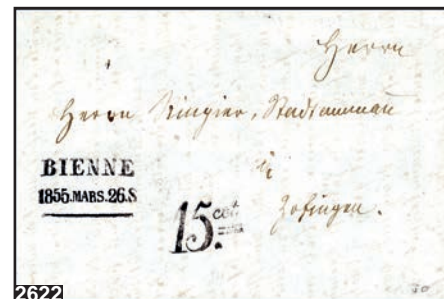 Herrn
Herrn Ringier, Stadtammann
in
Zofingen.
BIENNE
1855.MARS.26.S
15 cent.
2622